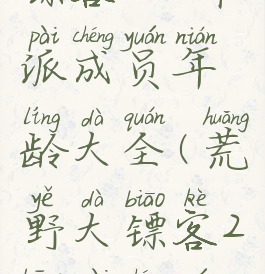 pài chéng yuán nián
派成员年
líng dà quán huāng
龄大全(荒
yě dà biāo kè
野大镖客2